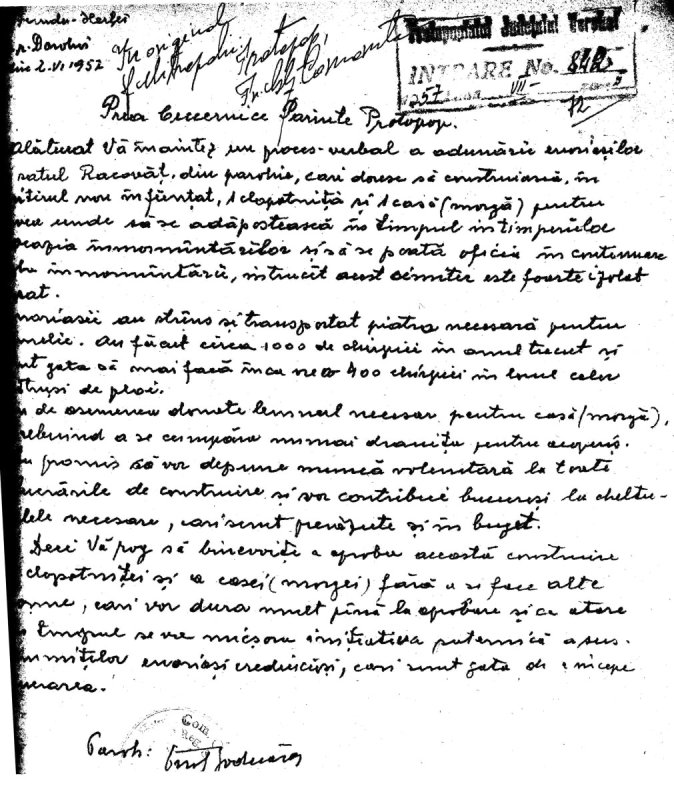 r. Dorohoi
2.VI.1952
In original
Protopop,
Protopopiatul Județului Dorohoi
INTRARE No. 842
257
VII
Prea Cucernice Părinte Protopop.
alăturat Vă înaintez un proces-verbal al adunării enoriașilor
satul Racovăț, din parohie, cari doresc să construiască, în
nou înființat, 1 clopotniță și 1 casă (morgă) pentru
unde să se adăpostească în timpul intemperiilor
înmormântărilor și să se poată oficia în continuare
înmormântării, intrucît acest cimitir este foarte izolat
au strîns și transportat piatra necesară pentru
Au făcut circa 1000 de chirpici în anul trecut și
gata să mai facă încă vreo 400 chirpici în locul celor
de ploi.
de asemenea donate lemnul necesar pentru casă (morgă),
a se cumpăra numai dranița pentru acoperiș.
promis să vor depune muncă voluntară la toate
de construire și vor contribui bucuroși la cheltu-
necesare, cari sunt prevăzute și în buget.
Deci Vă rog să binevoiți a aproba această construire
clopotniței și a casei (morgei) fără a se face alte
cari vor dura mult pînă la aprobare și ca atare
timpul se va micșora inițiativa puternică a sus-
enoriași credincioși, cari sunt gata de a începe
Paroh: